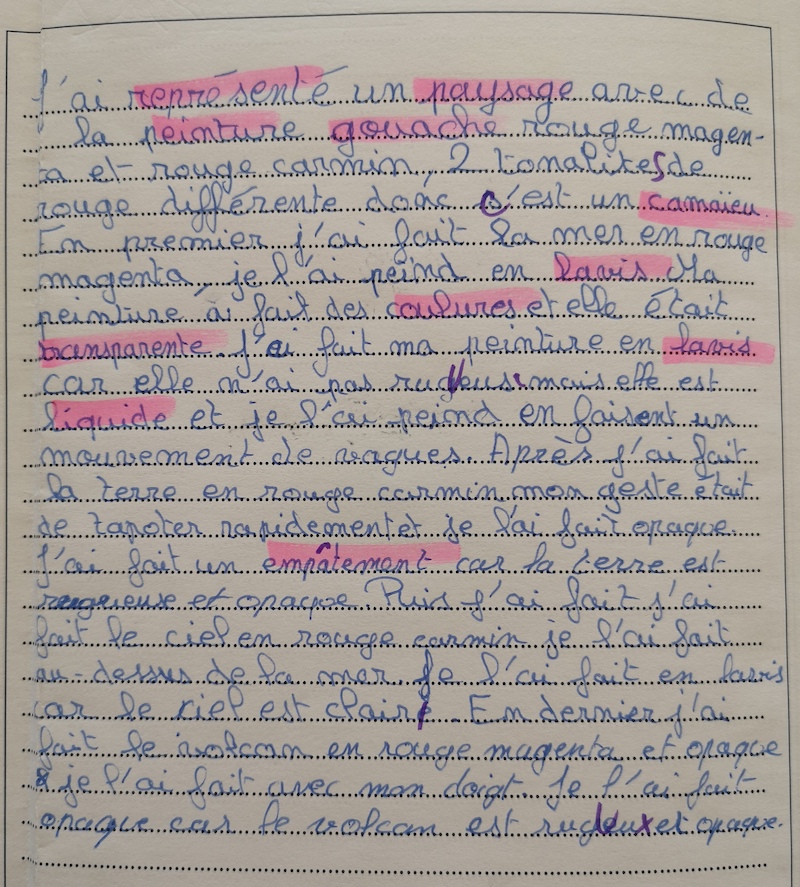 J'ai représenté un paysage avec de
la peinture gouache rouge magen-
ta et rouge carmin, 2 tonalités de
rouge différente donc c'est un camaïeu.
En premier j'ai fait la mer en rouge
magenta, je l'ai peind en lavis Ma
peinture a fait des coulures et elle était
transparente. J'ai fait ma peinture en lavis
car elle n'ai pas rugueuse mais elle est
liquide et je l'ai peind en faisant un
mouvement de vagues. Après j'ai fait
la terre en rouge carmin mon geste était
de tapoter rapidement et je l'ai fait opaque.
J'ai fait un empâtement car la terre est
rugueuse et opaque. Puis j'ai fait j'ai
fait le ciel en rouge carmin je l'ai fait
au-dessus de la mer. Je l'ai fait en lavis
car le ciel est clair. En dernier j'ai
fait le volcan en rouge magenta et opaque
je l'ai fait avec mon doigt. Je l'ai fait
opaque car le volcan est rugueux et opaque.